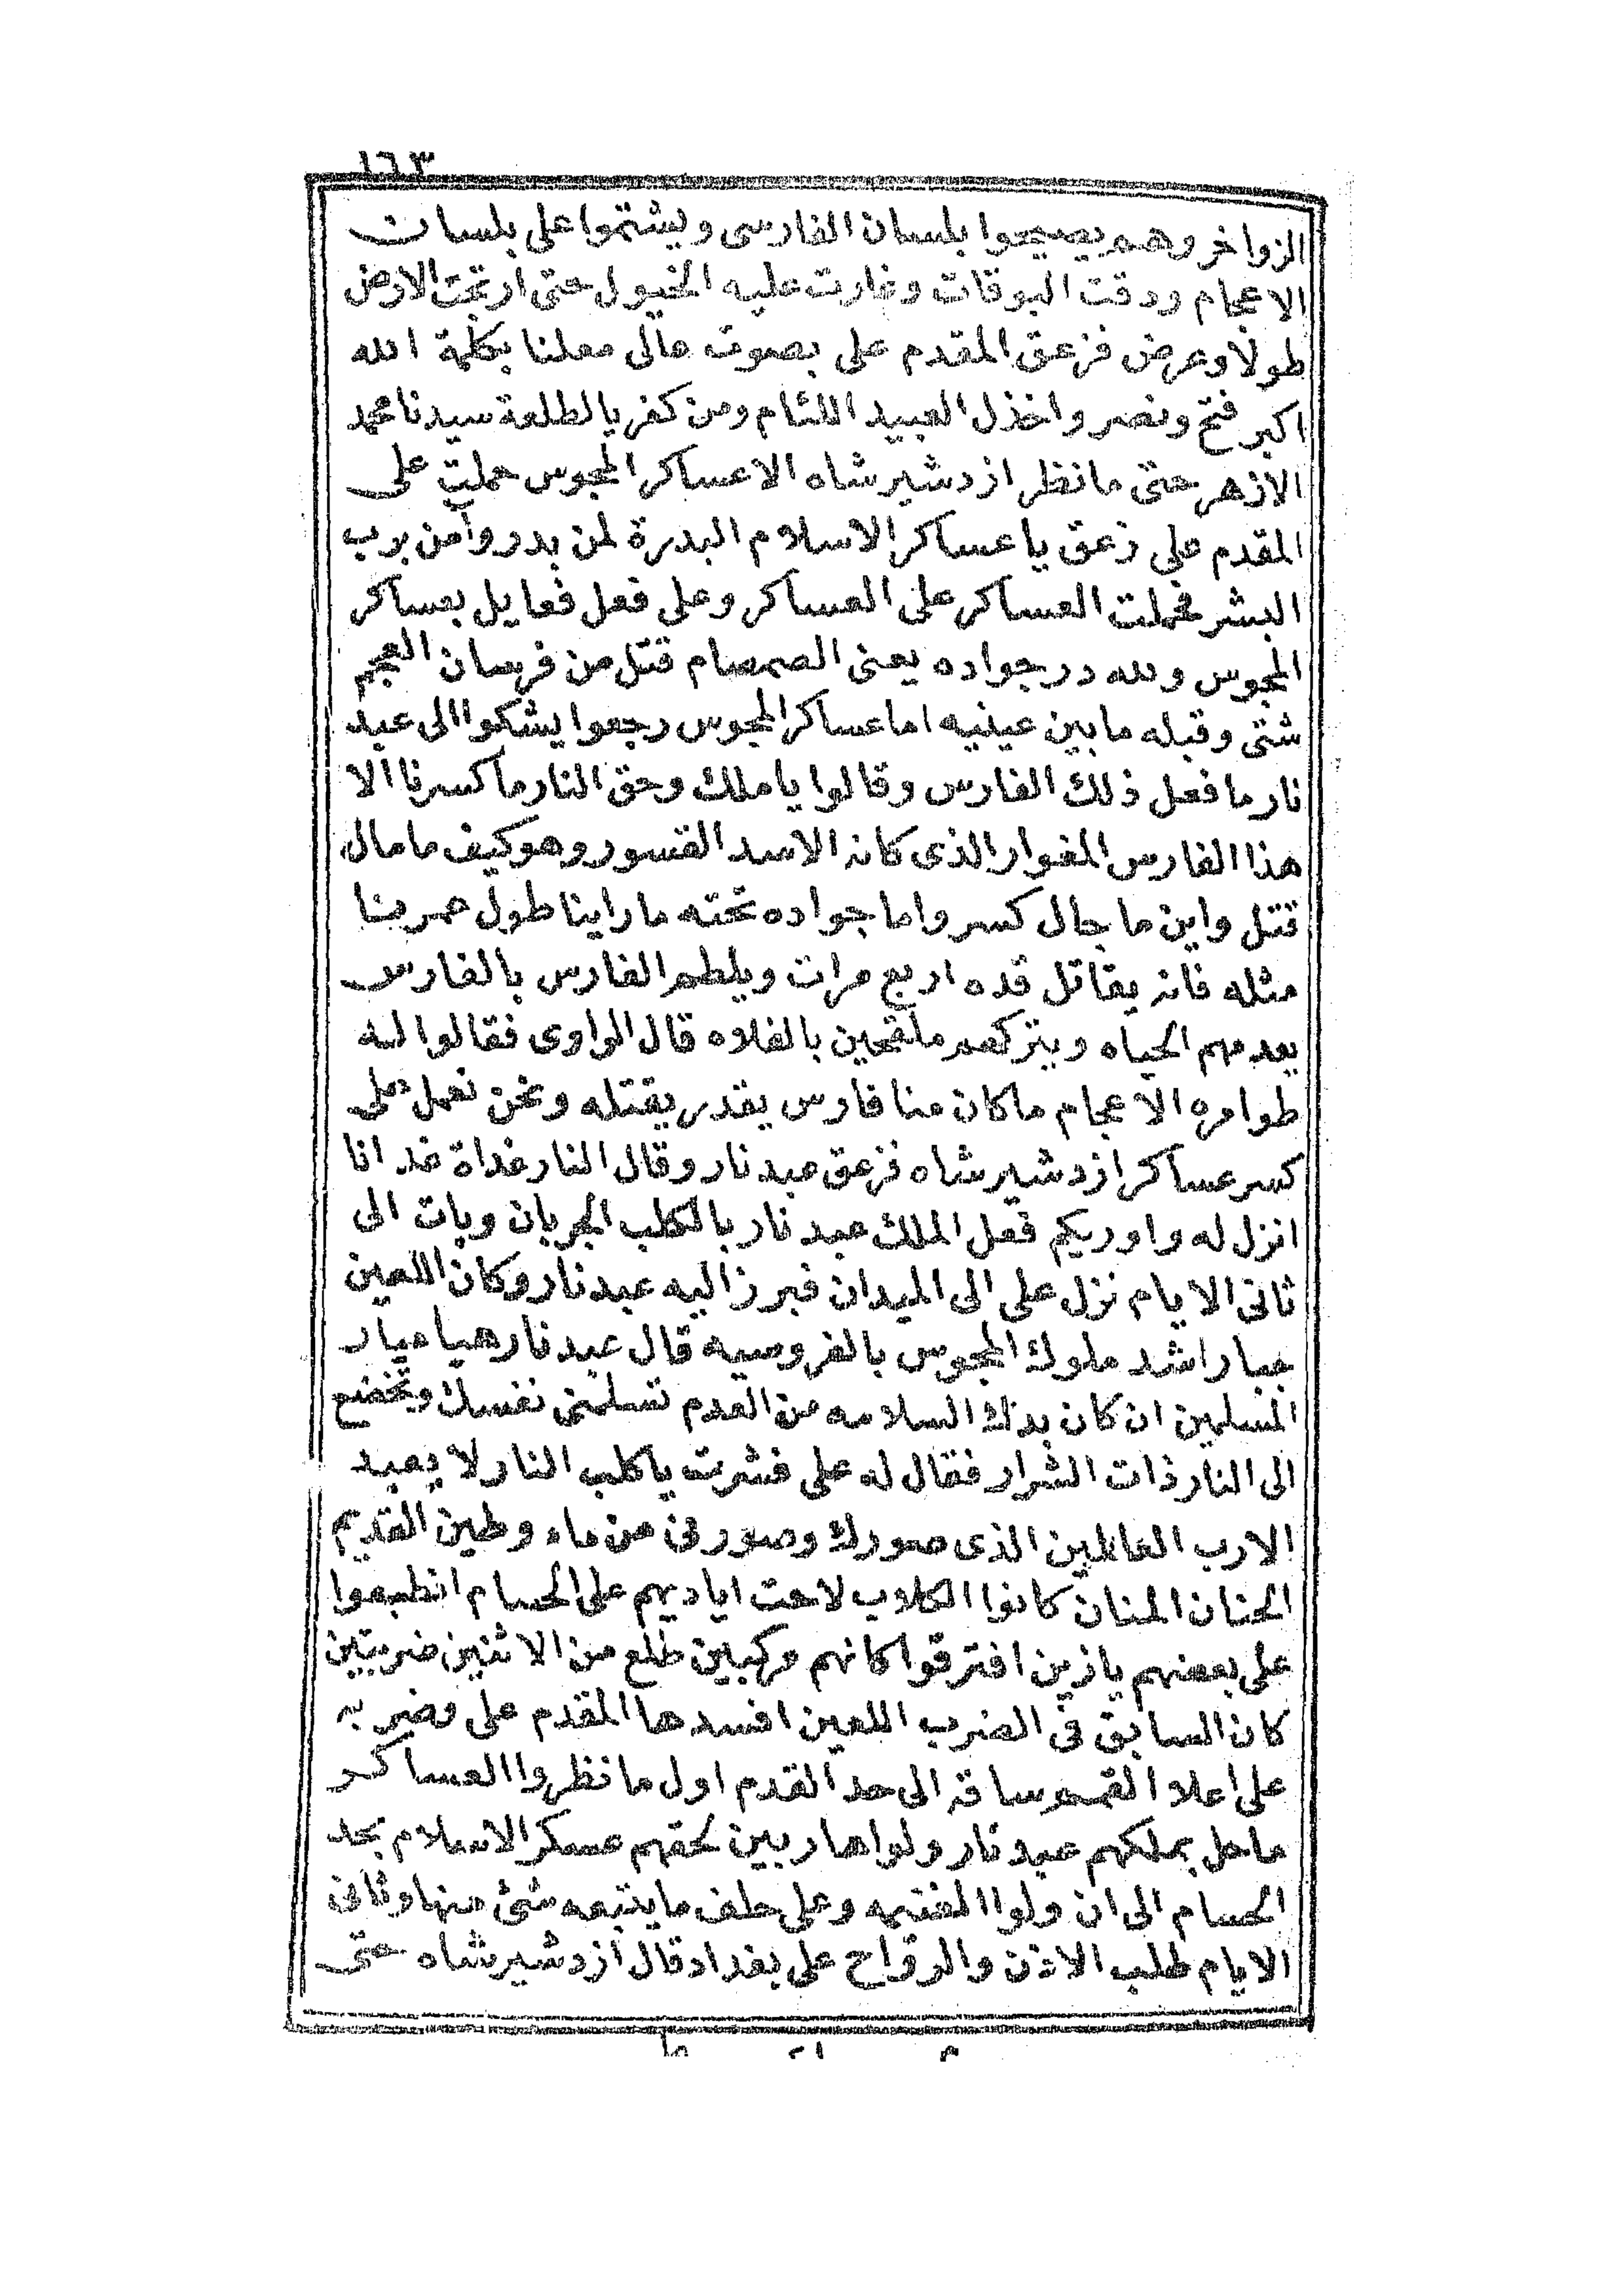 ١٦٣
الزواخر وهم يصيحوا بلسان الفارسى ويشتموا على بلسان
الاعجام ودقت البوقات وغارت عليه الخيول حتى ارتجت الارض
طولا وعرض فزعق المقدم على بصوت عالى معلنا بكلمة الله
اكبر فتح ونصر واخذل العبيد اللئام ومن كفر بالطلعة سيدنا محمد
الازهر حتى ما نظر ازدشير شاه الا عساكر المجوس حملت على
المقدم على زعق يا عساكر الاسلام البدرة لمن بدر وآمن برب
البشر فحملت العساكر على العساكر وعلى فعل فعايل بعساكر
المجوس ولله در جواده يعنى الصمصام قتل من فرسان العجم
شتى وقبله ما بين عينيه اما عساكر المجوس رجعوا يشكوا الى عبد
نار ما فعل ذلك الفارس وقالوا يا ملك وحق النار ما كسرنا الا
هذا الفارس المغوار الذى كانه الاسد القسور وهو كيف ما مال
قتل واين ما جال كسر واما جواده تحته ما راينا طول عمرنا
مثله فانه يقاتل قده اربع مرات ويلطم الفارس بالفارس
يعدمهم الحياه ويتركهم ملقحين بالفلاه قال الراوى فقالوا له
طوامره الاعجام ما كان منا فارس يقدر يقتله ونحن نعمل على
كسر عساكر ازدشير شاه فزعق عبد نار وقال النار غداة غد انا
انزل له واوريكم فعل الملك عبد نار بالكلب الجربان وبات الى
ثانى الايام نزل على الى الميدان فبرز اليه عبد نار وكان اللعين
جبار اشد ملوك المجوس بالفروسيه قال عبد نار هيا عيار
المسلمين ان كان بدك السلامه من العدم تسلمنى نفسك وتخضع
الى النار ذات الشرار فقال له على فشرت يا كلب النار لا يعبد
الا رب العالمين الذى صورك وصورنى من ماء وطين القديم
الحنان المنان كانوا الكلاب لاحت اياديهم على الحسام انطبعوا
على بعضهم يا زين افترقوا كانهم مركبين طلع من الاثنين ضربتين
كان السابق فى الضرب اللعين افسدها المقدم على وضربه
على اعلا القمه وساقه الى حد القدم اول ما نظروا العساكر
ما حل بملكهم عبد نار ولوا هاربين لحقهم عسكر الاسلام بحد
الحسام الى ان ولوا المغنيمه وعلى حلف ما يتبعه شئ منها وثانى
الايام طلب الاذن والرواح على بغداد قال ازدشير شاه حتى